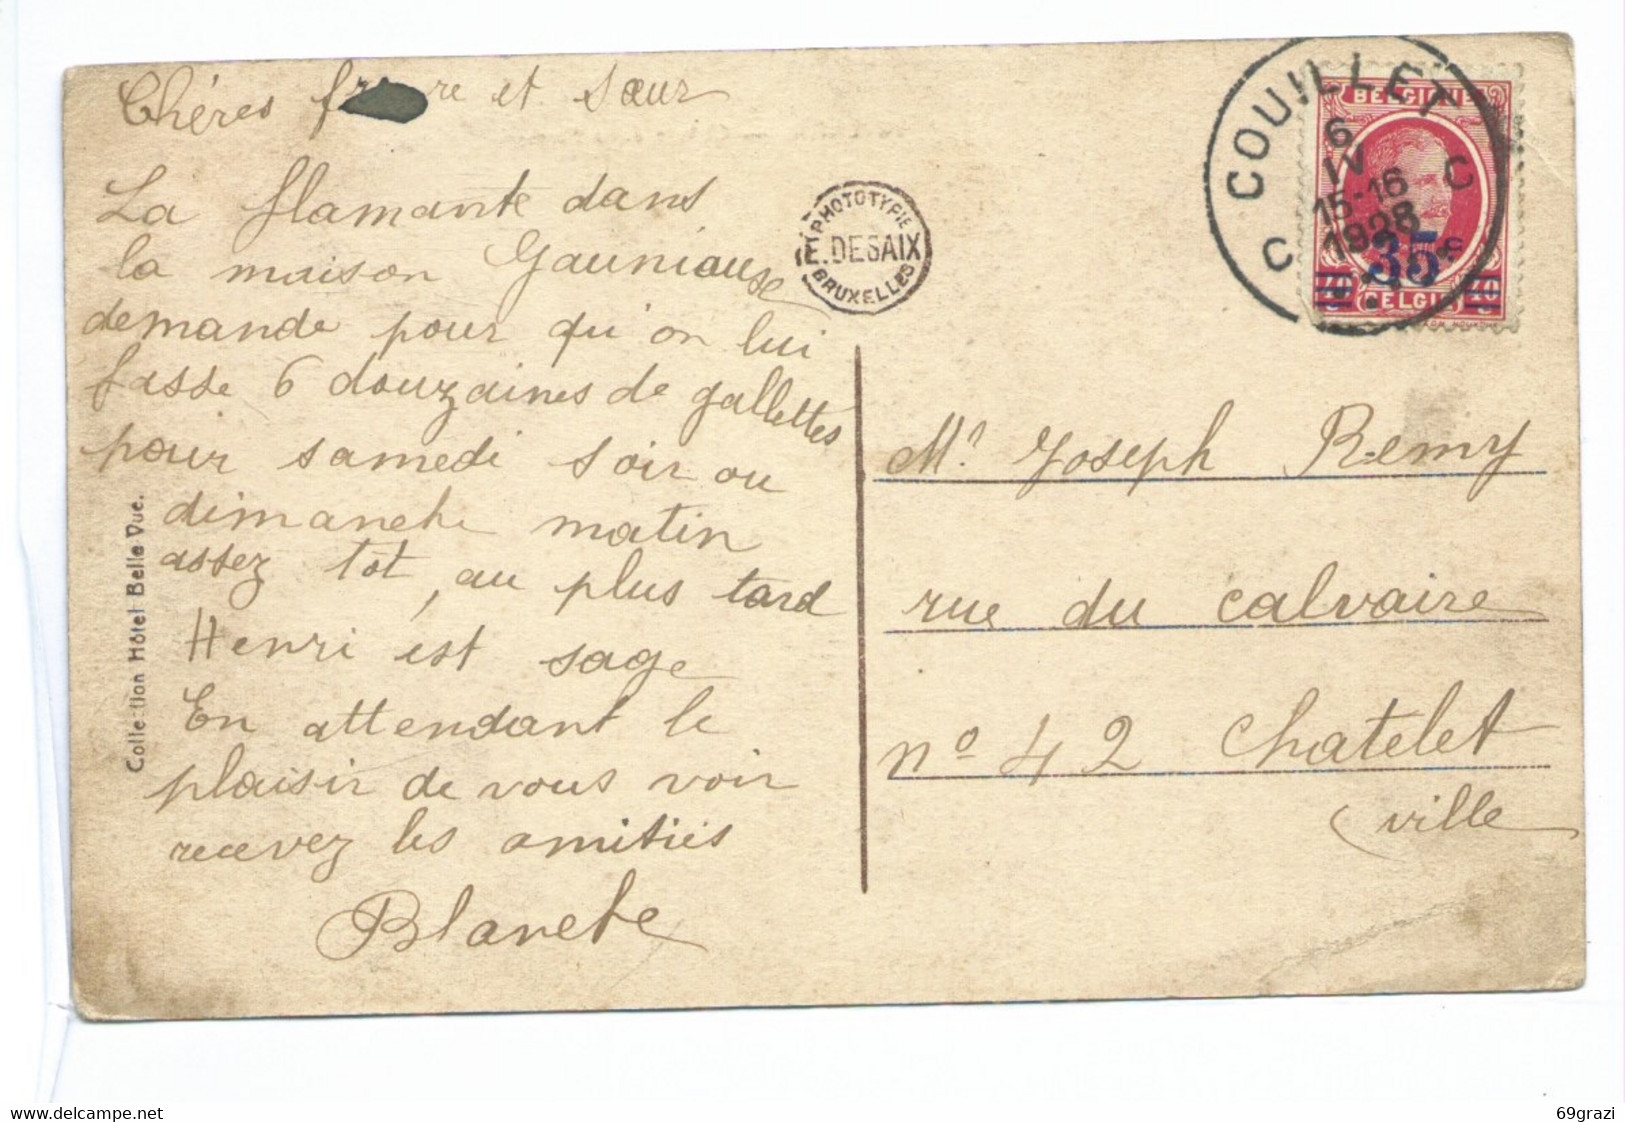 Chères frère et Sœur
La flamante dans
la maison Gauniause
demande pour qu'on lui
fasse 6 douzaines de gallettes
pour samedi soir ou
dimanche matin
assez tot, au plus tard
Henri est sage
En attendant le
plaisir de vous voir
recevez les amitiés
Blanche
Collection Hôtel Belle Vue.
PHOTOTYPIE
E. DESAIX
BRUXELLES
COUILLET
6
IV
15-16
1928
C C
BELGIQUE
35c
BELGIË
Mr Joseph Remy
rue du calvaire
no 42 Chatelet
ville
69grazi